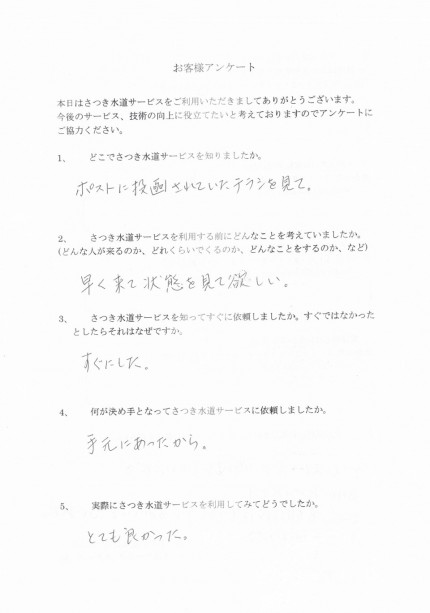 お客様アンケート
本日はさつき水道サービスをご利用いただきましてありがとうございます。
今後のサービス、技術の向上に役立てたいと考えておりますのでアンケートに
ご協力ください。
1、 どこでさつき水道サービスを知りましたか。
ポストに投函されていたチラシを見て。
2、 さつき水道サービスを利用する前にどんなことを考えていましたか。
(どんな人が来るのか、どれくらいでくるのか、どんなことをするのか、など)
早く来て状態を見て欲しい。
3、 さつき水道サービスを知ってすぐに依頼しましたか。すぐではなかった
としたらそれはなぜですか。
すぐにした。
4、 何が決め手となってさつき水道サービスに依頼しましたか。
手元にあったから。
5、 実際にさつき水道サービスを利用してみてどうでしたか。
とても良かった。